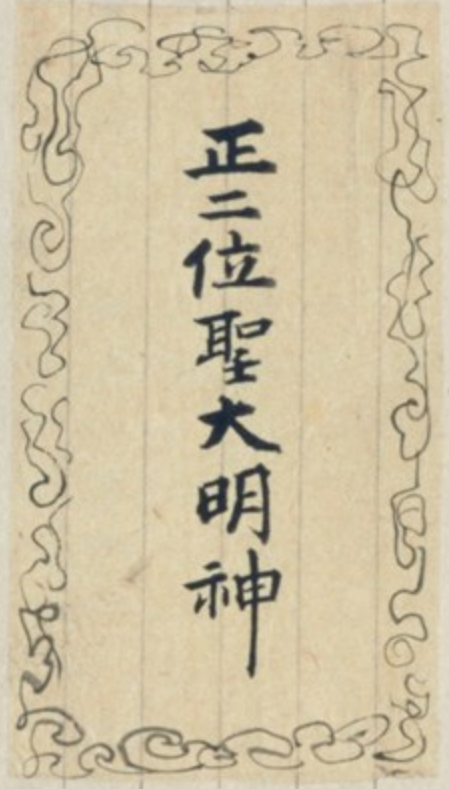 正二位聖大明神